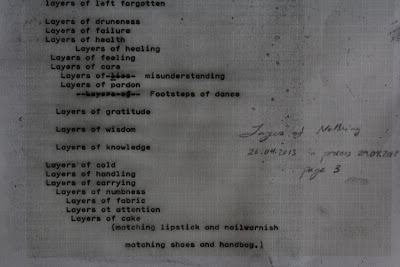 layers of left forgotten
Layers of druneness
Layers of failure
Layers of health
Layers of healing
Layers of feeling
Layers of care
Layers of lies misunderstanding
Layers of pardon
Layers of Footsteps of dance
Layers of gratitude
Layers of wisdom
Layers of knowledge
Layers of Nothing
26.04.2013 in process
page 3
Layers of cold
Layers of handling
Layers of carrying
Layers of numbness
Layers of fabric
Layers of attention
Layers of cake
(matching lipstick and nailwarnish
matching shoes and handbag.)